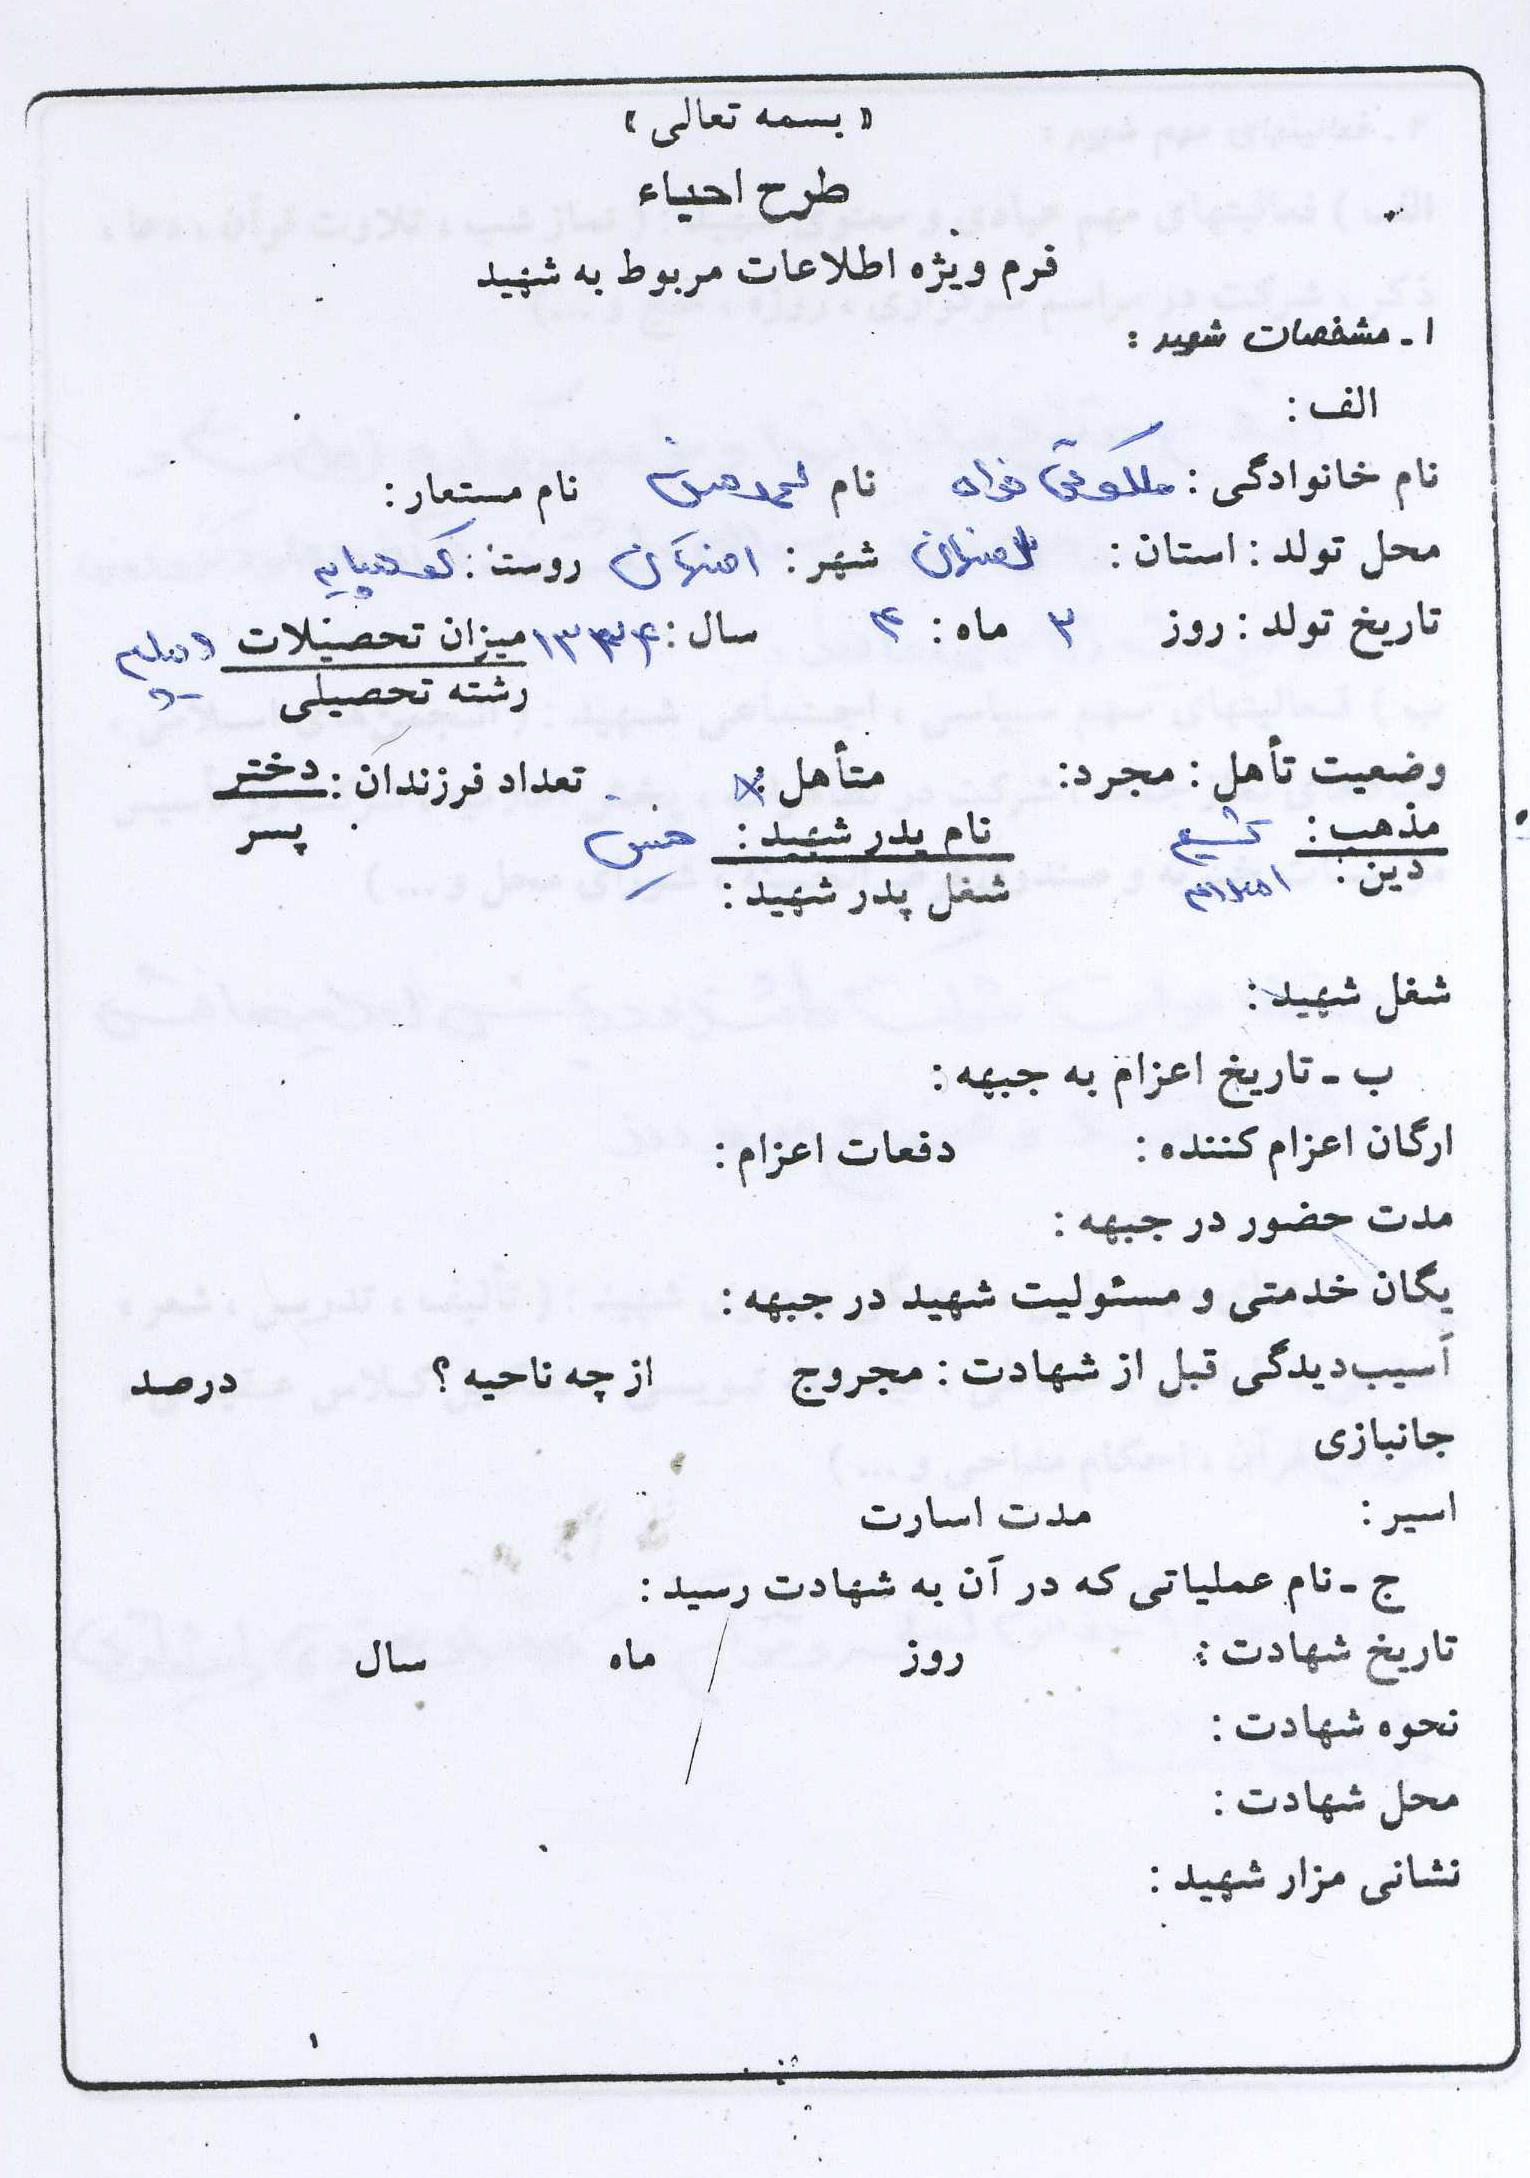 « بسمه تعالی »
طرح احیاء
فرم ویژه اطلاعات مربوط به شهید
۱ ـ مشخصات شهید :
الف :
نام خانوادگی : ملکوتی خواه نام محمد حسن نام مستعار :
محل تولد : استان : اصفهان شهر : اصفهان روستا : کوهپایه
تاریخ تولد : روز ۳ ماه : ۴ سال : ۱۳۳۴ میزان تحصیلات دیپلم
رشته تحصیلی
وضعیت تأهل : مجرد : متأهل : × تعداد فرزندان : دختر
پسر
مذهب : تشیع نام پدر شهید : حسن
دین : اسلام شغل پدر شهید :
شغل شهید :
ب ـ تاریخ اعزام به جبهه :
ارگان اعزام کننده : دفعات اعزام :
مدت حضور در جبهه :
یگان خدمتی و مسئولیت شهید در جبهه :
آسیب‌دیدگی قبل از شهادت : مجروح از چه ناحیه ؟ درصد
جانبازی
اسیر : مدت اسارت
ج ـ نام عملیاتی که در آن به شهادت رسید :
تاریخ شهادت : روز ماه سال
نحوه شهادت :
محل شهادت :
نشانی مزار شهید :
۱